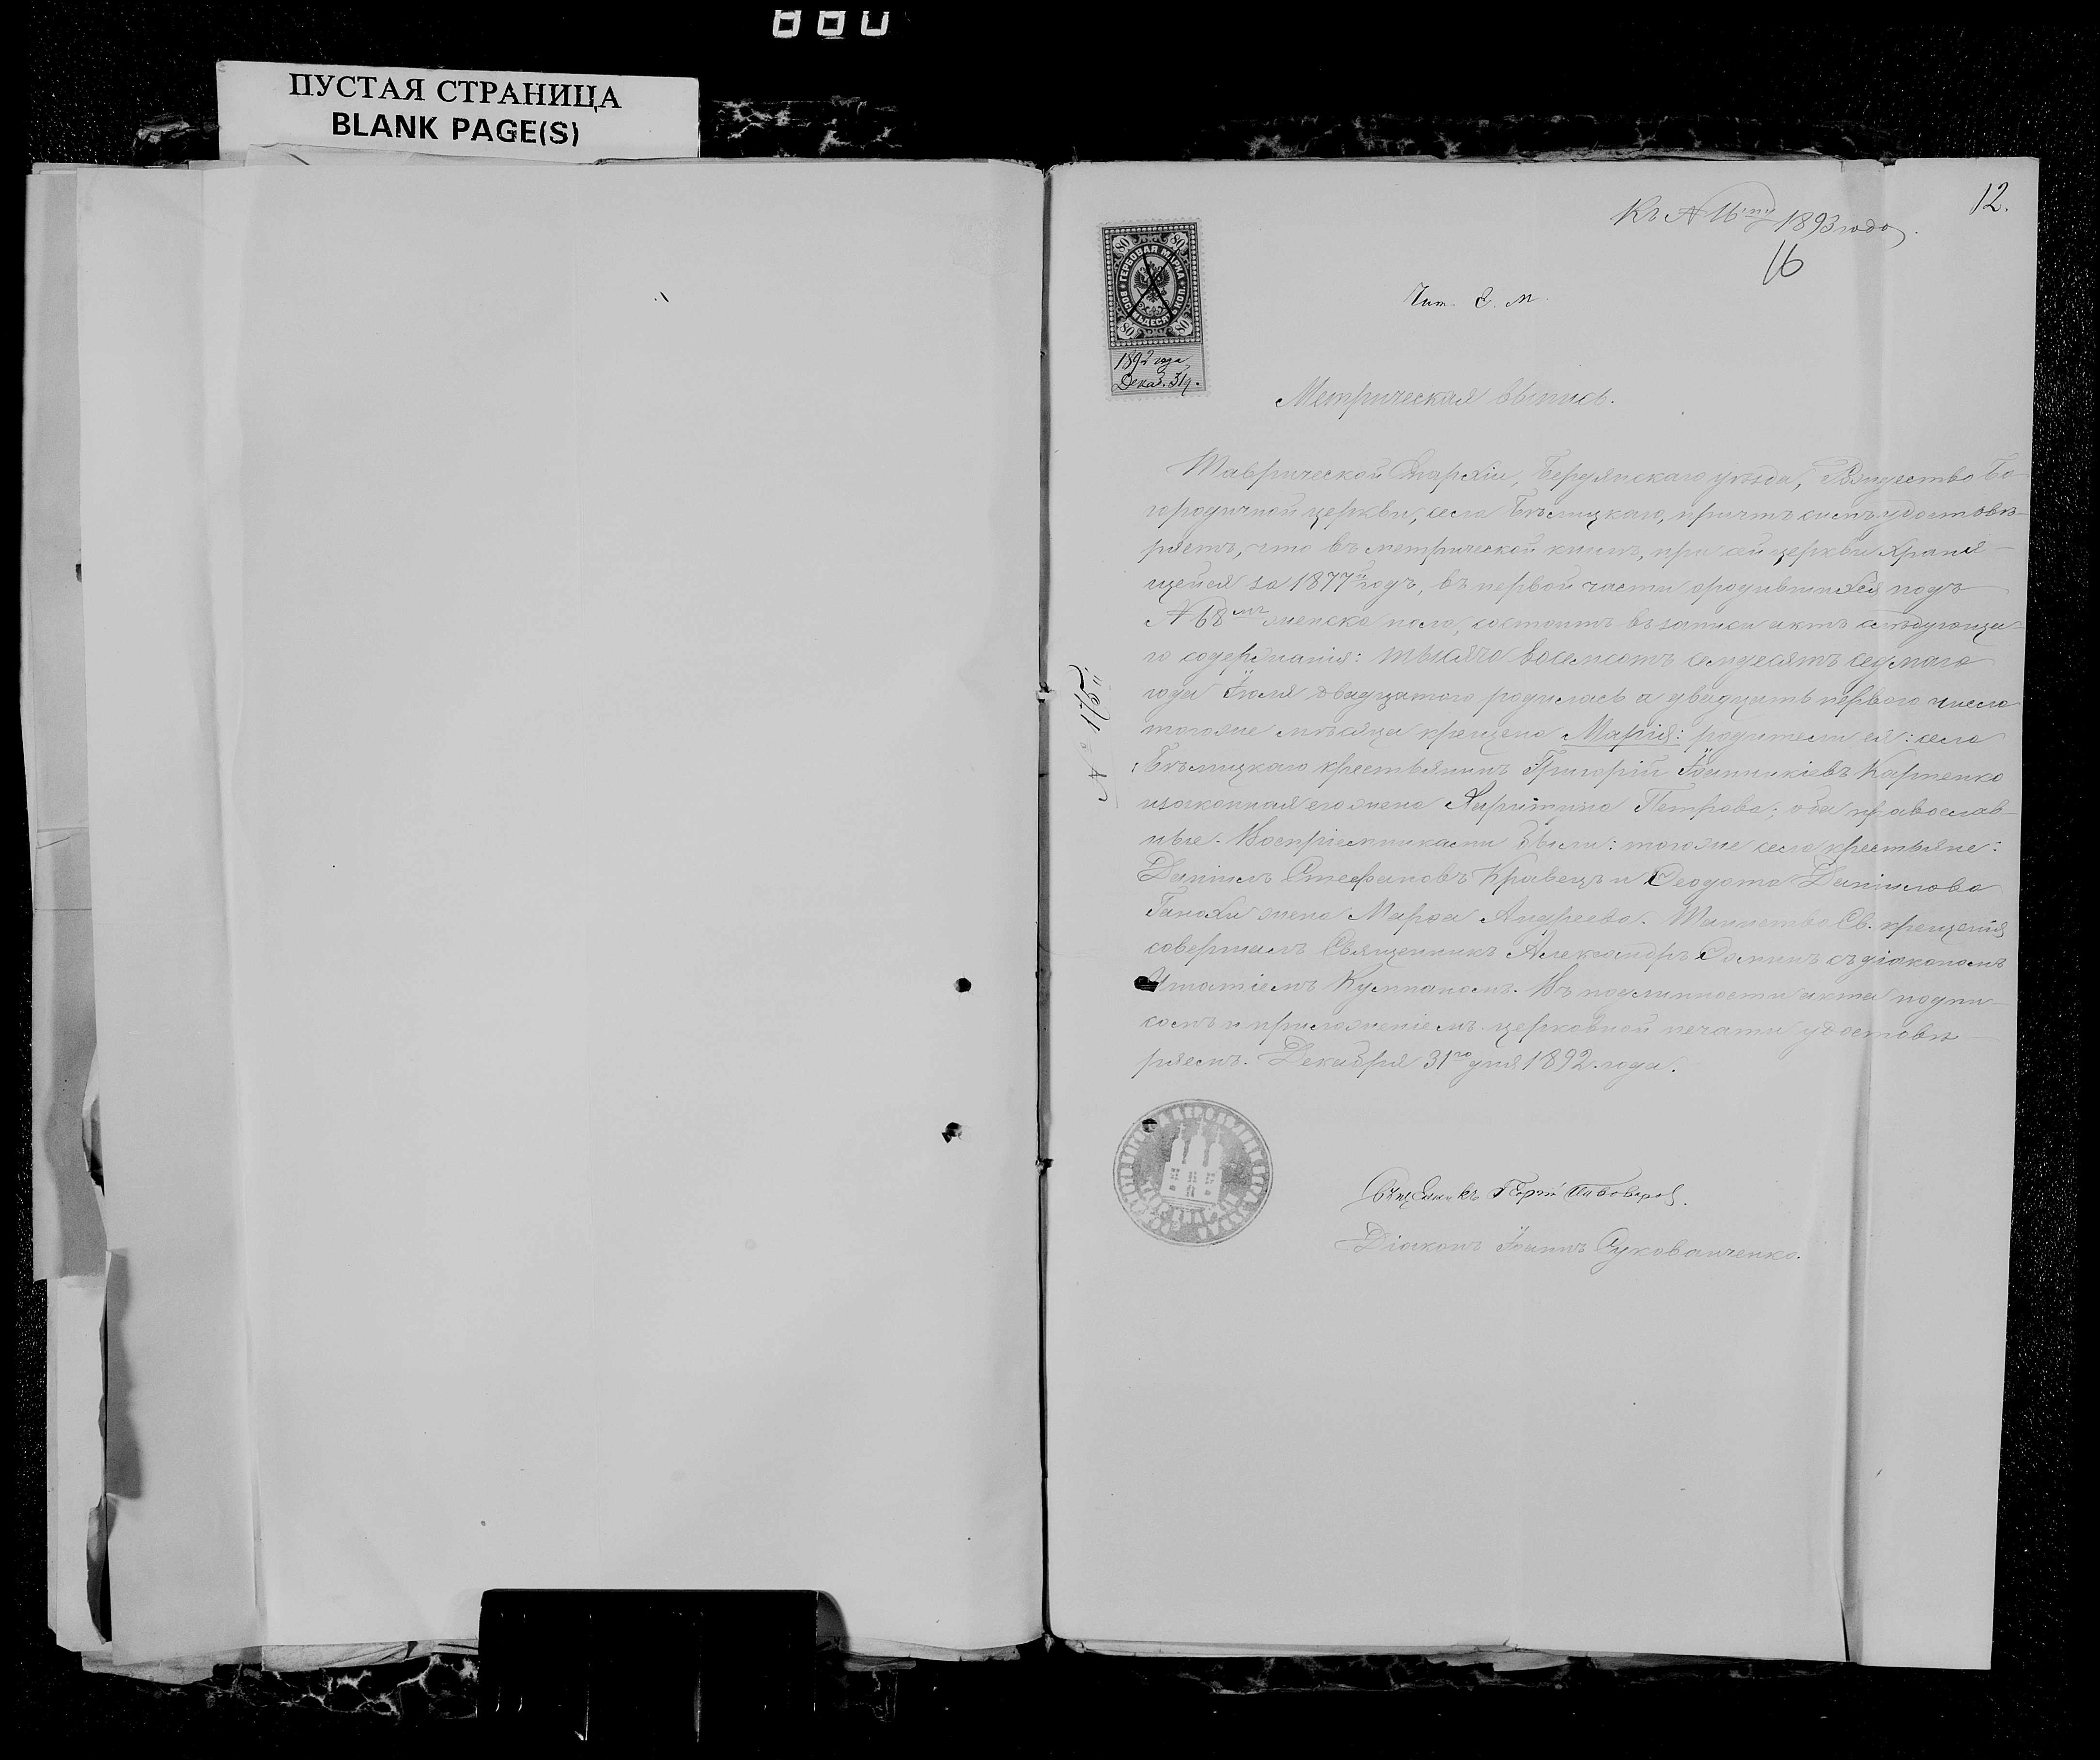 ПУСТАЯ СТРАНИЦА
BLANK PAGE(S)
12.
Къ № 16 1893 года
16
80 80
ГЕРБОВАЯ МАРКА
ВОСЕМЬДЕСЯТЪ КОП.
80 80
1892 года
Декаб. 31 д.
Метрическая выпись.
Таврической Епархіи, Бердянскаго уѣзда, Рождество Бо-
городичной церкви, села Бѣлицкаго, причтъ симъ удостовѣ-
ряетъ, что въ метрической книгѣ, при сей церкви храня-
щейся за 1877й годъ, въ первой части о родившихся подъ
№ 68мъ женска пола, состоитъ въ записи актъ слѣдующа-
го содержанія: тысяча восемсотъ семдесятъ седмаго
года Іюля двадцатого родилась а двадцать первого числа
тогоже мѣсяца крещена Марія: родители ея: села
Бѣлицкаго крестьянинъ Григорій Іоанникіевъ Карпенко
и законная его жена Харитина Петрова; оба православ-
ные. Воспріемниками были: тогоже села крестьяне:
Даніилъ Стефановъ Кравецъ и Ѳеодота Данилова
жена Марѳа Андреева. Таинство Св. крещенія
совершалъ Священникъ Александръ съ діакономъ
Игнатіемъ. Въ подлинности акта подпи-
сомъ и приложеніемъ церковной печати удостовѣ-
ряемъ. Декабря 31го дня 1892 года.
Священникъ Пивоваровъ.
Діаконъ Іоаннъ